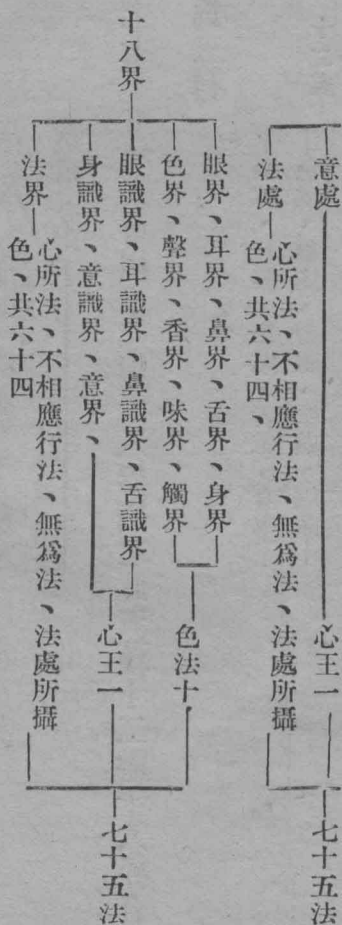 意處
心王一
法處
心所法、不相應行法、無爲法、法處所攝
色、共六十四、
七十五法
十八界
眼界、耳界、鼻界、舌界、身界
色界、聲界、香界、味界、觸界
色法十
眼識界、耳識界、鼻識界、舌識界
身識界、意識界、意界、
心王一
法界
心所法、不相應行法、無爲法、法處所攝
色、共六十四
七十五法